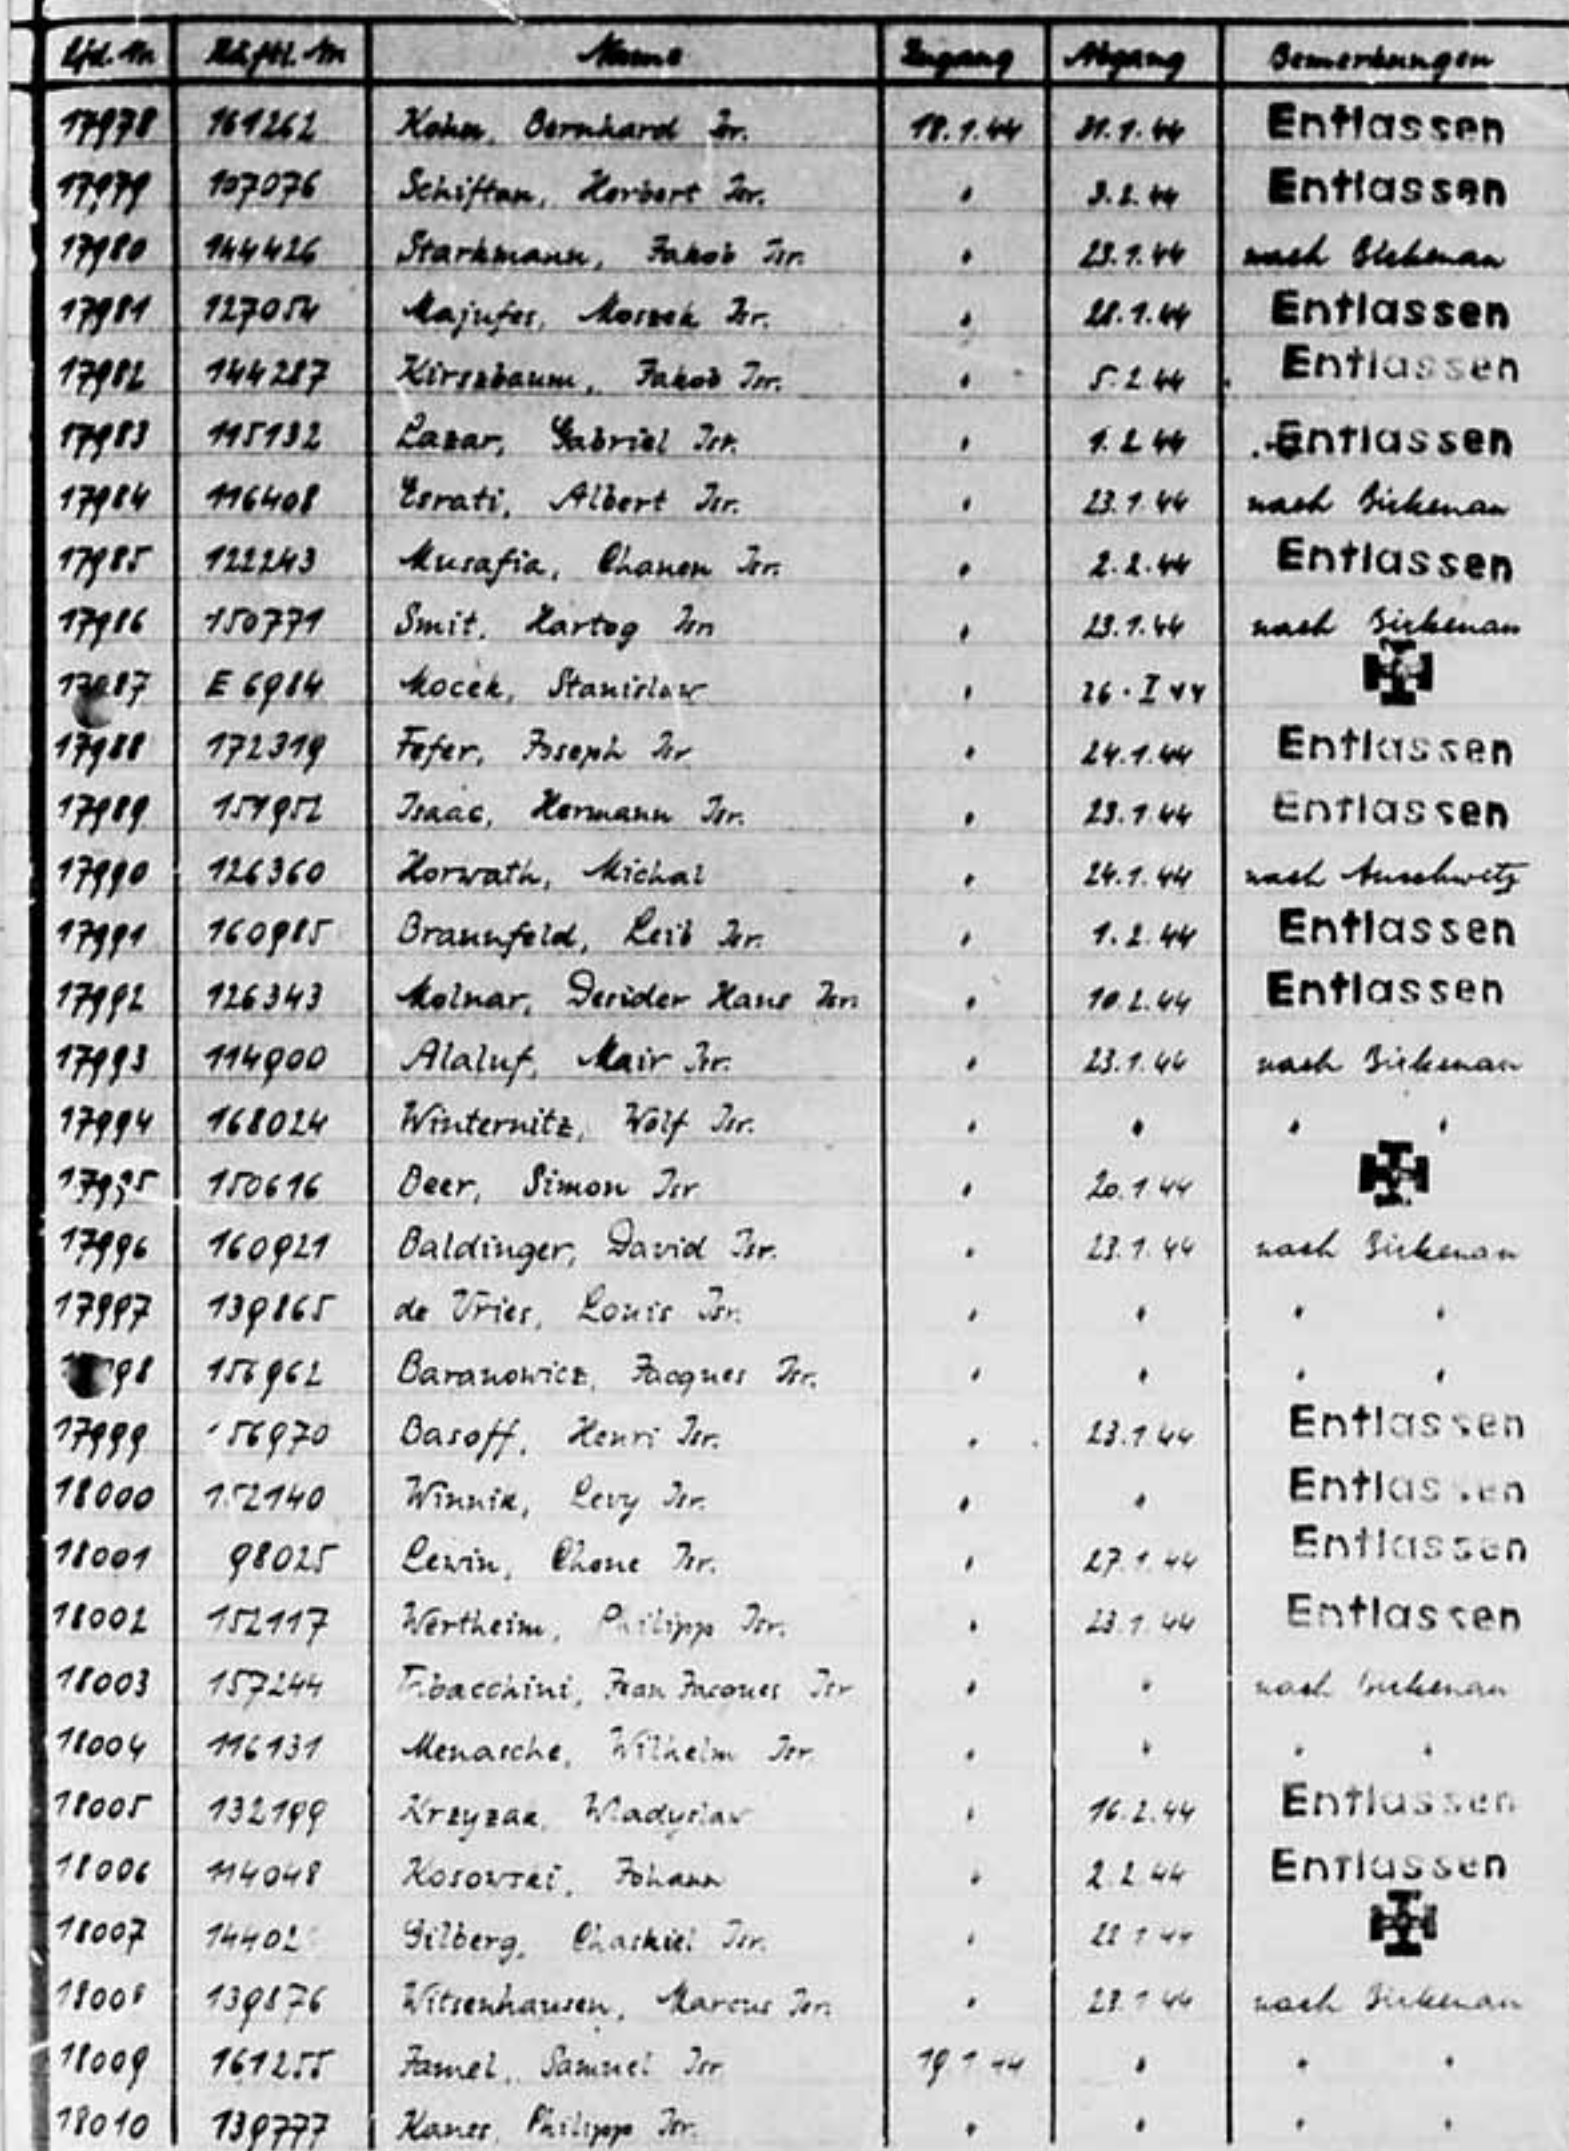 Lfd. Nr Häftl. Nr Name Zugang Abgang Bemerkungen
17978 161262 Kohn, Bernhard Isr. 18.1.44 31.1.44 Entlassen
17979 107076 Schiftan, Herbert Isr. " 3.2.44 Entlassen
17980 144426 Starkmann, Jakob Isr. " 23.1.44 nach Birkenau
17981 127054 Majufes, Moszek Isr. " 28.1.44 Entlassen
17982 144287 Kirszbaum, Jakob Isr. " 5.2.44 Entlassen
17983 115132 Lazar, Gabriel Isr. " 1.2.44 Entlassen
17984 116408 Esrati, Albert Isr. " 23.1.44 nach Birkenau
17985 122243 Musafia, Chanen Isr. " 2.2.44 Entlassen
17986 150771 Smit, Hartog Isr. " 23.1.44 nach Birkenau
17987 E 6984 Mocek, Stanislaw " 26.I 44
17988 172319 Fefer, Joseph Isr " 24.1.44 Entlassen
17989 151952 Isaac, Hermann Isr. " 23.1.44 Entlassen
17990 126360 Horwath, Michal " 24.1.44 nach Auschwitz
17991 160985 Braunfeld, Leib Isr. " 1.2.44 Entlassen
17992 126343 Molnar, Desider Hans Isr. " 10.2.44 Entlassen
17993 114900 Alaluf, Mair Isr. " 23.1.44 nach Birkenau
17994 168024 Winternitz, Wolf Isr. " " " "
17995 150616 Beer, Simon Isr " 20.1.44
17996 160921 Baldinger, David Isr. " 23.1.44 nach Birkenau
17997 139865 de Vries, Louis Isr. " " " "
98 156962 Baranowicz, Jacques Isr. " " " "
17999 56970 Basoff, Henri Isr. " 23.1.44 Entlassen
18000 152140 Winnik, Levy Isr. " " Entlassen
18001 98025 Lewin, Chone Isr. " 27.1.44 Entlassen
18002 152117 Wertheim, Philipp Isr. " 23.1.44 Entlassen
18003 157244 Jean Jacques Isr " " nach Birkenau
18004 116131 Menasche, Wilhelm Isr. " " " "
18005 132199 Krzyzak, Wladyslaw " 16.2.44 Entlassen
18006 114048 Kosowski, Johann " 2.2.44 Entlassen
18007 14402 Gilberg, Chaskiel Isr. " 22.1.44
1800 139876 Witsenhausen, Marcus Isr. " 23.1.44 nach Birkenau
18009 161255 Jamel, Samuel Isr 19.1.44 " " "
18010 139777 Kanes, Philipp Isr. " " " "